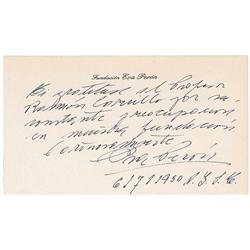 Fundación Eva Perón
Mi gratitud al Profesor
Ramón Carrillo por su
constante preocupación
en nuestra fundación.
Cariñosamente
Eva Perón
6/7/1950